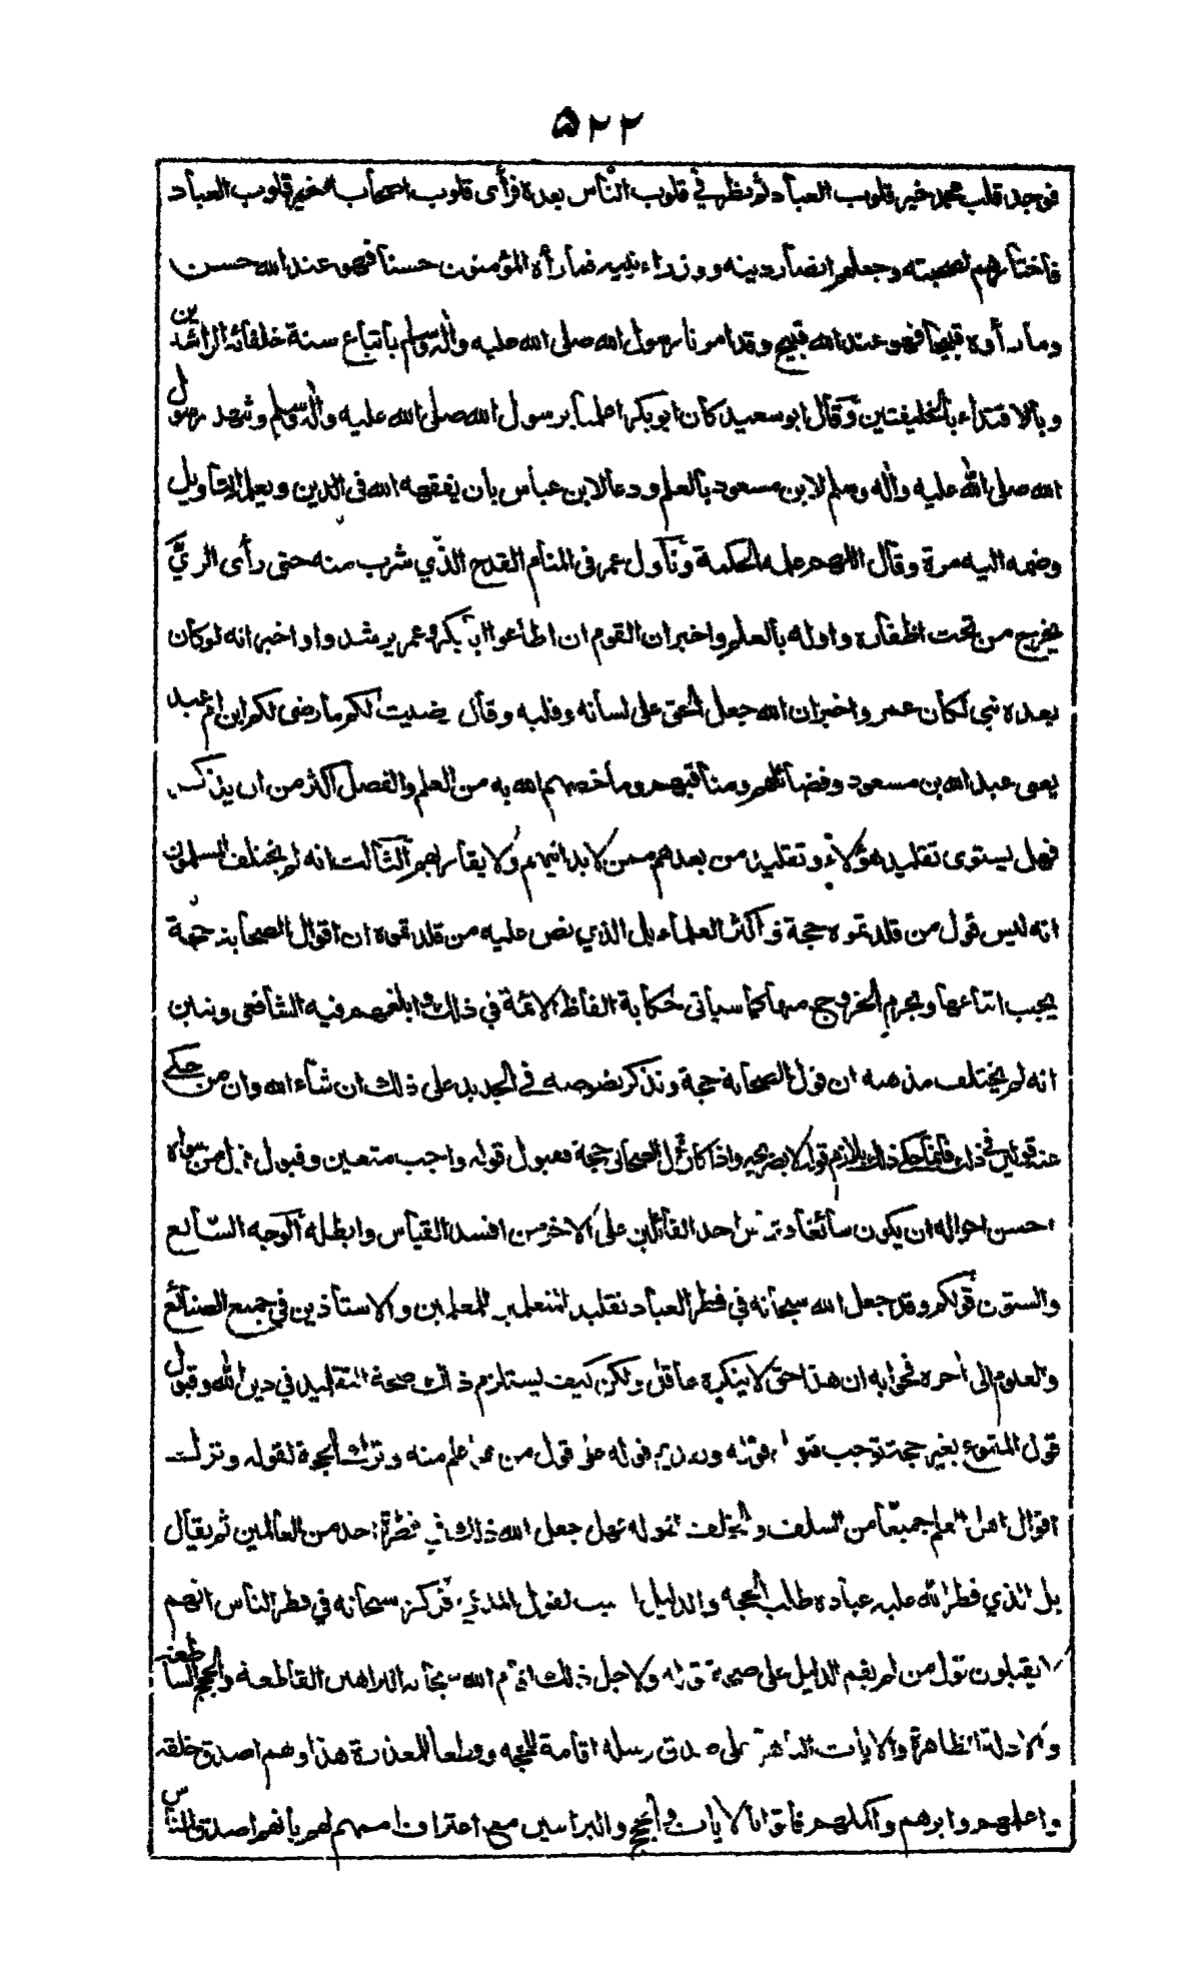 ۵۲۲
فوجد قلب محمد خير قلوب العباد ثم نظر في قلوب الناس بعده فرأى قلوب اصحابه خير قلوب العباد
فاختارهم لصحبته وجعلهم انصار دينه ووزراء نبيه فما رأه المؤمنون حسنا فهو عند الله حسن
وما رأوه قبيحا فهو عند الله قبيح وقد امرنا رسول الله صلى الله عليه واله وسلم باتباع سنة خلفائه الراشدين
وبالاقتداء بالخليفتين وقال ابو سعيد كان ابو بكر اعلمنا برسول الله صلى الله عليه واله وسلم وشهد رسول
الله صلى الله عليه واله وسلم لابن مسعود بالعلم ودعا لابن عباس بان يفقهه الله في الدين ويعلمه التأويل
وضمه اليه مرة وقال اللهم علمه الحكمة وتأول عمر في المنام القدح الذي شرب منه حتى رأى الري
يخرج من تحت اظفاره واوله بالعلم واخبر ان القوم ان اطاعوا ابا بكر وعمر يرشدوا واخبر انه لو كان
بعده نبي لكان عمر واخبر ان الله جعل الحق على لسانه وقلبه وقال رضيت لكم ما رضى لكم ابن ام عبد
يعنى عبد الله بن مسعود وفضائلهم ومناقبهم وما خصهم الله به من العلم والفضل اكثر من ان يذكر
فهل يستوى تقليد هؤلاء وتقليد من بعدهم ممن لا يدانيهم ولا يقاربهم الثالث انه لم يختلف المسلمون
انه ليس قول من قلدتموه حجة واكثر العلماء بل الذي نص عليه من قلدتموه ان اقوال الصحابة حجة
يجب اتباعها ويحرم الخروج منها كما سياتى حكاية الفاظ الائمة في ذلك وابلغهم فيه الشافعى ونبين
انه لم يختلف مذهبه ان قول الصحابة حجة ونذكر نصوصه في الجديد على ذلك ان شاء الله وان من حكى
عنه قولين في ذلك فانما حكى ذلك بلازم قوله لا بصريحه واذا كان قول الصحابي حجة فقبول قوله واجب متعين وقبول قول من سواه
احسن احواله ان يكون سائغا وقياس احد القائلين على الاخر من افسد القياس وابطله الوجه السابع
والستون قولكم وقد جعل الله سبحانه في فطر العباد تقليد المتعلمين للمعلمين والاستاذين في جميع الصنائع
والعلوم الى أخره فجوابه ان هذا حق لا ينكره عاقل ولكن كيف يستلزم ذلك صحة التقليد في دين الله وقبول
قول المتبوع بغير حجة توجب قبول قوله وتقديم قوله على قول من هو اعلم منه وترك الحجة لقوله وترك
اقوال اهل العلم جميعا من السلف والخلف لقوله فهل جعل الله ذلك في فطرة احد من العالمين ثم يقال
بل الذي فطر الله عليه عباده طلب الحجة والدليل المثبت لقول المدعي فركز سبحانه في فطر الناس انهم
لا يقبلون قول من لم يقم الدليل على صحة قوله ولاجل ذلك اقام الله سبحانه البراهين القاطعة والحجج الساطعة
والادلة الظاهرة والايات الباهرة على صدق رسله اقامة للحجة وقطعا للمعذرة هذا وهم اصدق خلقه
واعلمهم وابرهم واكملهم فاتوا بالايات والحجج والبراهين مع اعتراف اممهم لهم بانهم اصدق الناس